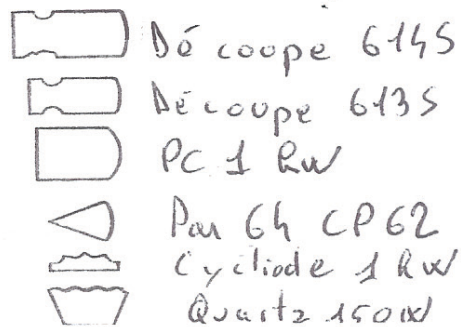 Découpe 614S
Découpe 613S
PC 1 kW
Par 64 CP62
Cycliode 1 kW
Quartz 150W